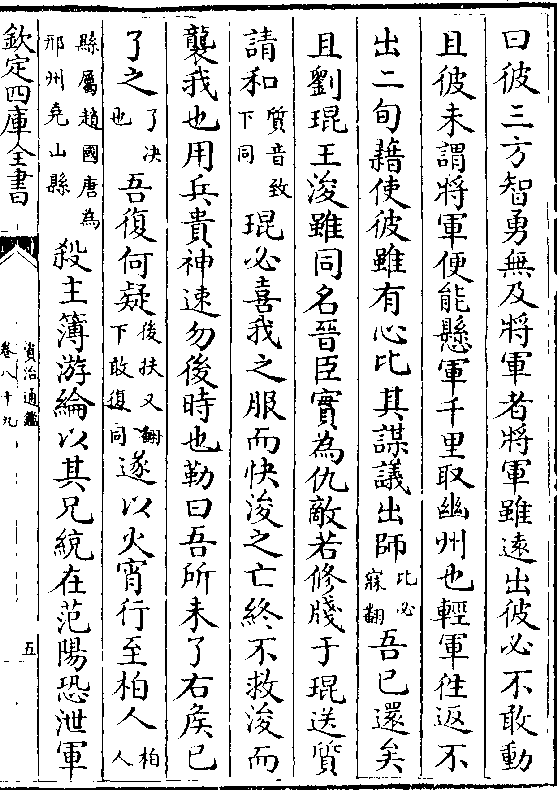 曰彼三方智勇無及將軍者將軍雖遠出彼必不敢動
且彼未謂將軍便能懸軍千里取幽州也輕軍徃返不
出二旬藉使彼雖有心比其謀議出師比必寐翻吾已還矣
且劉琨王浚雖同名晉臣實為仇敵若修牋于琨送質
請和質音致下同琨必喜我之服而快浚之亡終不救浚而
襲我也用兵貴神速勿後時也勒曰吾所未了右矦已
了之了决也吾復何疑復扶又翻下敢復同遂以火宵行至柏人柏人
縣屬趙國唐為邢州堯山縣殺主簿游綸以其兄統在范陽恐泄軍
欽定四庫全書
資治通鑑
卷八十九
五